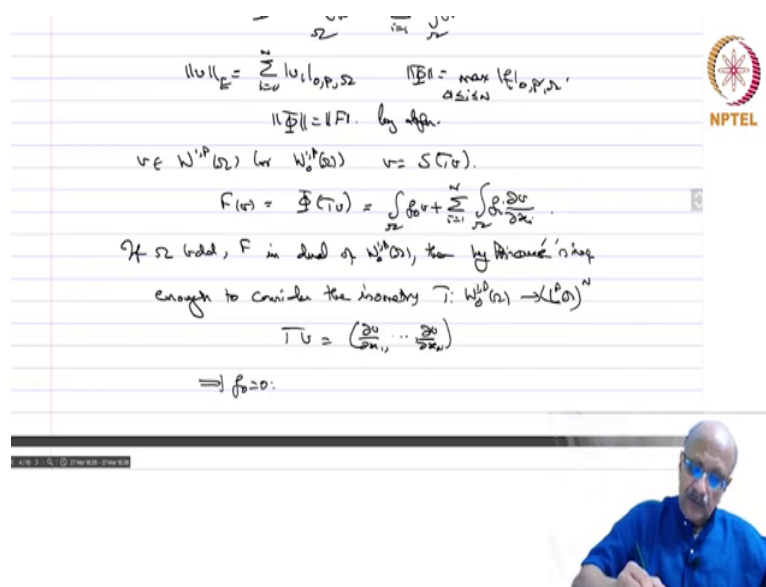 Ω i=1 Ω
‖v‖_E = Σ_{i=0}^{N} |v_i|_{0,p,Ω} ‖Φ‖ = max_{0≤i≤N} |f_i|_{0,p',Ω}.
‖Φ‖ = ‖F‖. by defn.
v ∈ W^{1,p}(Ω) (or W_0^{1,p}(Ω)) v = S(Tv).
F(v) = Φ(Tv) = ∫_Ω f_0 v + Σ_{i=1}^{N} ∫_Ω f_i ∂v/∂x_i.
If Ω bdd, F in dual of W_0^{1,p}(Ω), then by Poincaré's ineq
enough to consider the isometry T: W_0^{1,p}(Ω) → (L^p(Ω))^N
Tv = (∂v/∂x_1, ... ∂v/∂x_N)
⟹ f_0 = 0.
NPTEL